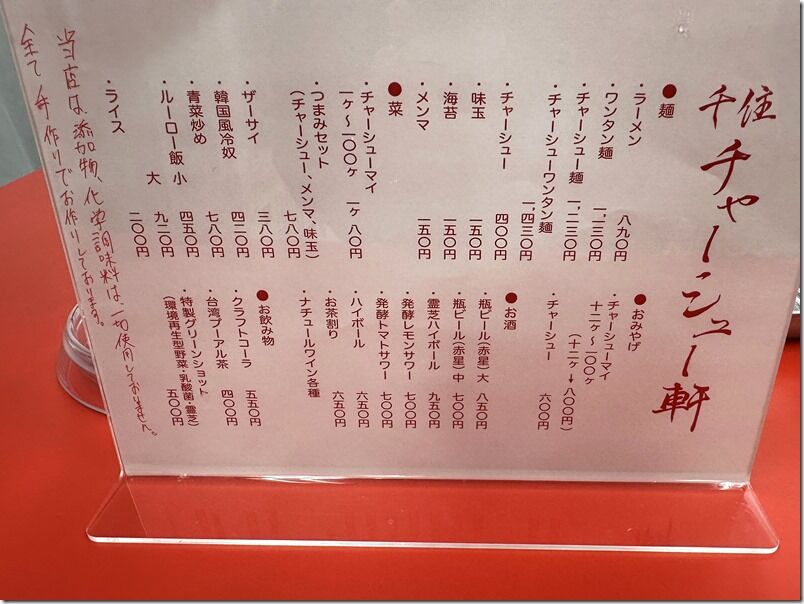 千住 チャーシュー軒
●麺
・ラーメン 八九〇円
・ワンタン麺 一、一三〇円
・チャーシュー麺 一、二三〇円
・チャーシューワンタン麺 一、四三〇円
・チャーシュー 四〇〇円
・味玉 一五〇円
・海苔 一五〇円
・メンマ 一五〇円
●菜
・チャーシューマイ
一ケ～一〇〇ヶ 一ヶ 八〇円
・つまみセット 七八〇円
（チャーシュー、メンマ、味玉）
・ザーサイ 三八〇円
・韓国風冷奴 四二〇円
・青菜炒め 七八〇円
・ルーロー飯 小 四五〇円
大 九二〇円
・ライス 二〇〇円
●おみやげ
・チャーシューマイ
十二ヶ～一〇〇ヶ
（十二ヶ→八〇〇円）
・チャーシュー 六〇〇円
●お酒
・瓶ビール（赤星）大 八五〇円
・瓶ビール（赤星）中 七〇〇円
・霊芝ハイボール 九五〇円
・発酵レモンサワー 七〇〇円
・発酵トマトサワー 七〇〇円
・ハイボール 六五〇円
・お茶割り 六五〇円
・ナチュールワイン各種
●お飲み物
・クラフトコーラ 五五〇円
・台湾プーアル茶 四〇〇円
・特製グリーンショット 五〇〇円
（環境再生型野菜・乳酸菌・霊芝）
当店は、添加物、化学調味料は、一切使用しておりません。
全て手作りでお作りしております。